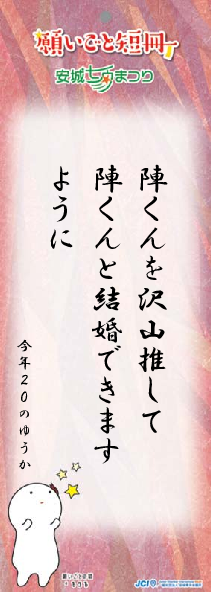 願いごと短冊
安城七夕まつり
陣くんを沢山推して
陣くんと結婚できます
ように
今年20のゆうか
願いごと短冊
JCI